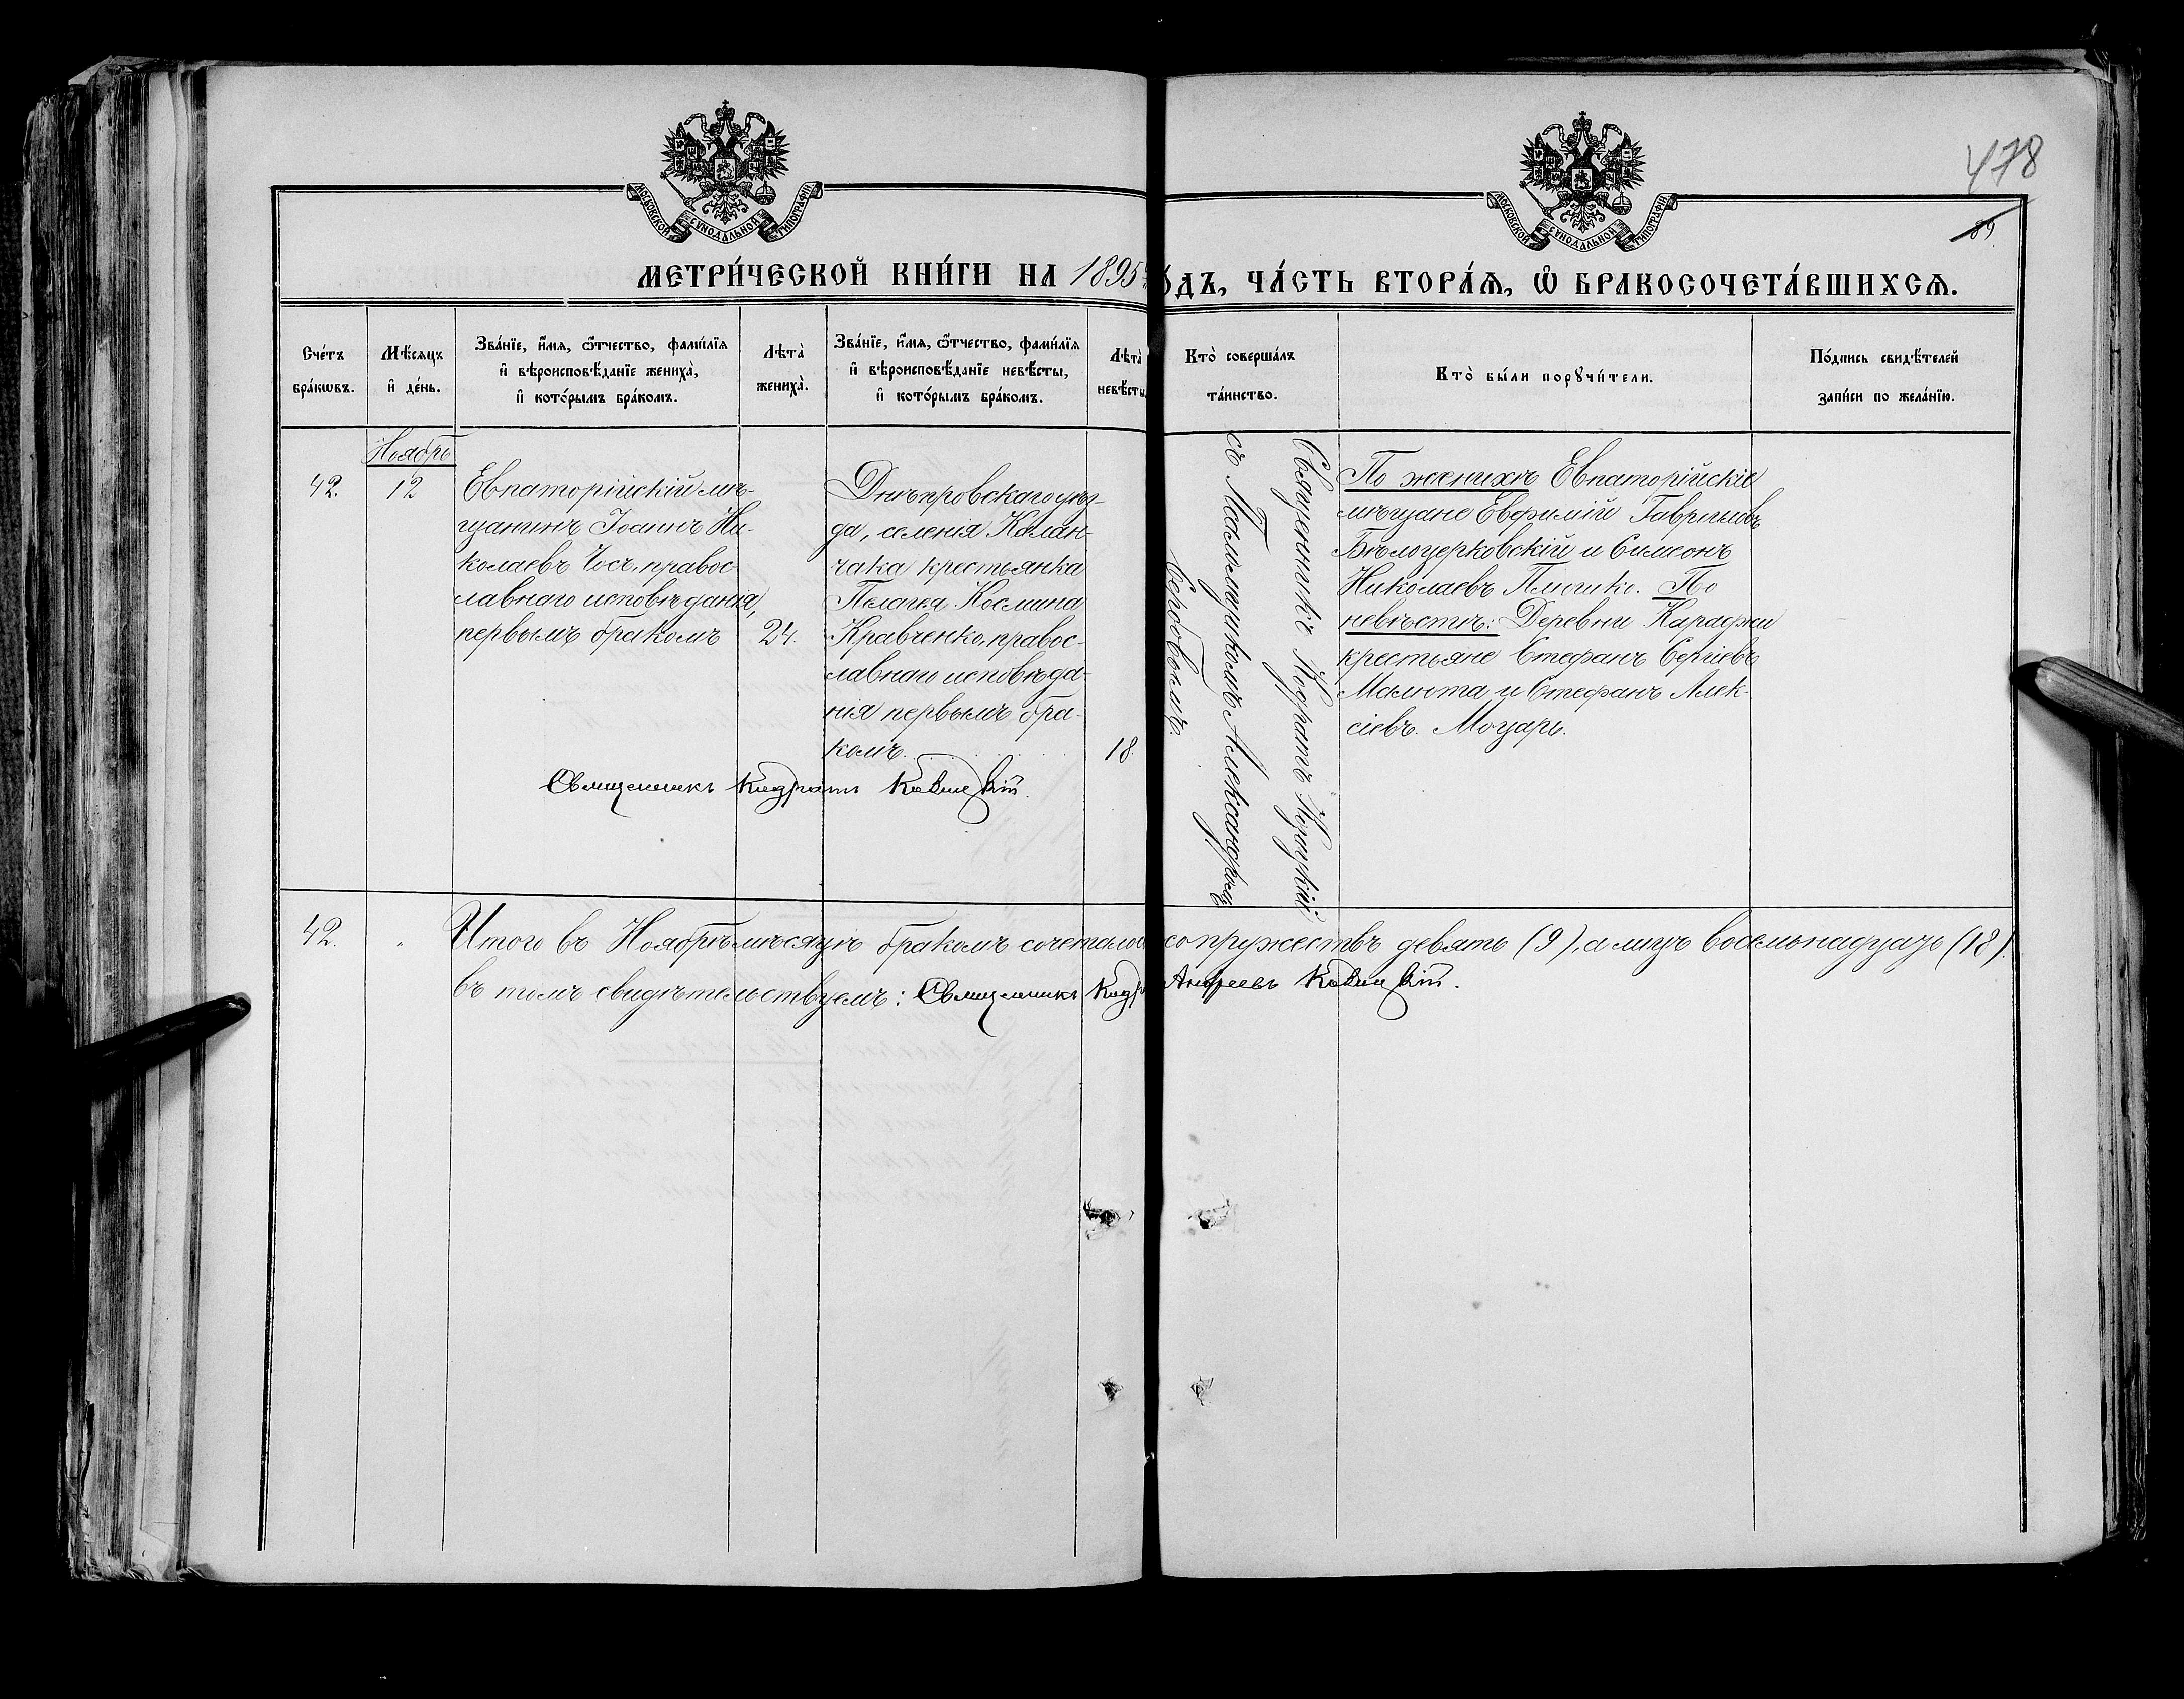 478
89.
МОСКОВСКОЙ СѴНОДАЛЬНОЙ ТИПОГРАФІИ
МОСКОВСКОЙ СѴНОДАЛЬНОЙ ТИПОГРАФІИ
МЕТРИ́ЧЕСКОЙ КНИ́ГИ НА 1895
О́ДЪ, ЧА́СТЬ ВТОРА́Ѧ, Ѽ БРАКОСОЧЕТА́ВШИХСѦ.
Сче́тъ бра́кѡвъ.
Мѣ́сѧцъ и҆ де́нь.
Зва́нїе, и҆́мѧ, ѻ҆́тчество, фами́лїѧ
и҆ вѣроисповѣ́данїе жениха̀,
и҆ кото́рымъ бра́комъ.
Лѣта̀ жениха̀.
Зва́нїе, и҆́мѧ, ѻ҆́тчество, фами́лїѧ
и҆ вѣроисповѣ́данїе невѣ́сты,
и҆ кото́рымъ бра́комъ.
Лѣта̀ невѣ́сты
Кто̀ соверша́лъ
та́инство.
Кто̀ бы́ли порꙋчи́тели.
По́дпись свидѣ́телей
за́писи по жела́нїю.
Ноябрь
42.
12
Евпаторійскій мѣ-
щанинъ Іоаннъ Ни-
колаевъ Чосъ, правос-
лавнаго исповѣданія,
первымъ бракомъ
24.
Днѣпровскаго уѣз-
да, селенія Калан-
чака крестьянка
Пелагея Космина
Кравченко, правос-
лавнаго исповѣда-
нія первымъ бра-
комъ.
18
Священникъ Кодратъ
съ Псаломщикомъ Александромъ
Сербовомъ.
По женихѣ Евпаторійскіе
мѣщане Евфимій Гавриловъ
Бѣлоцерковскій и Симеонъ
Николаевъ Плюшко. По
невѣстѣ: Деревни Караджи
крестьяне Стефанъ Сергіевъ
Малюта и Стефанъ Алек-
сіевъ Моцарь.
Священникъ Кодратъ
42.
Итого въ Ноябрѣ мѣсяцѣ бракомъ сочеталось сопружествъ девять (9), а лицъ восемьнадцать (18).
въ томъ свидѣтельствуемъ: Священникъ Андреевъ